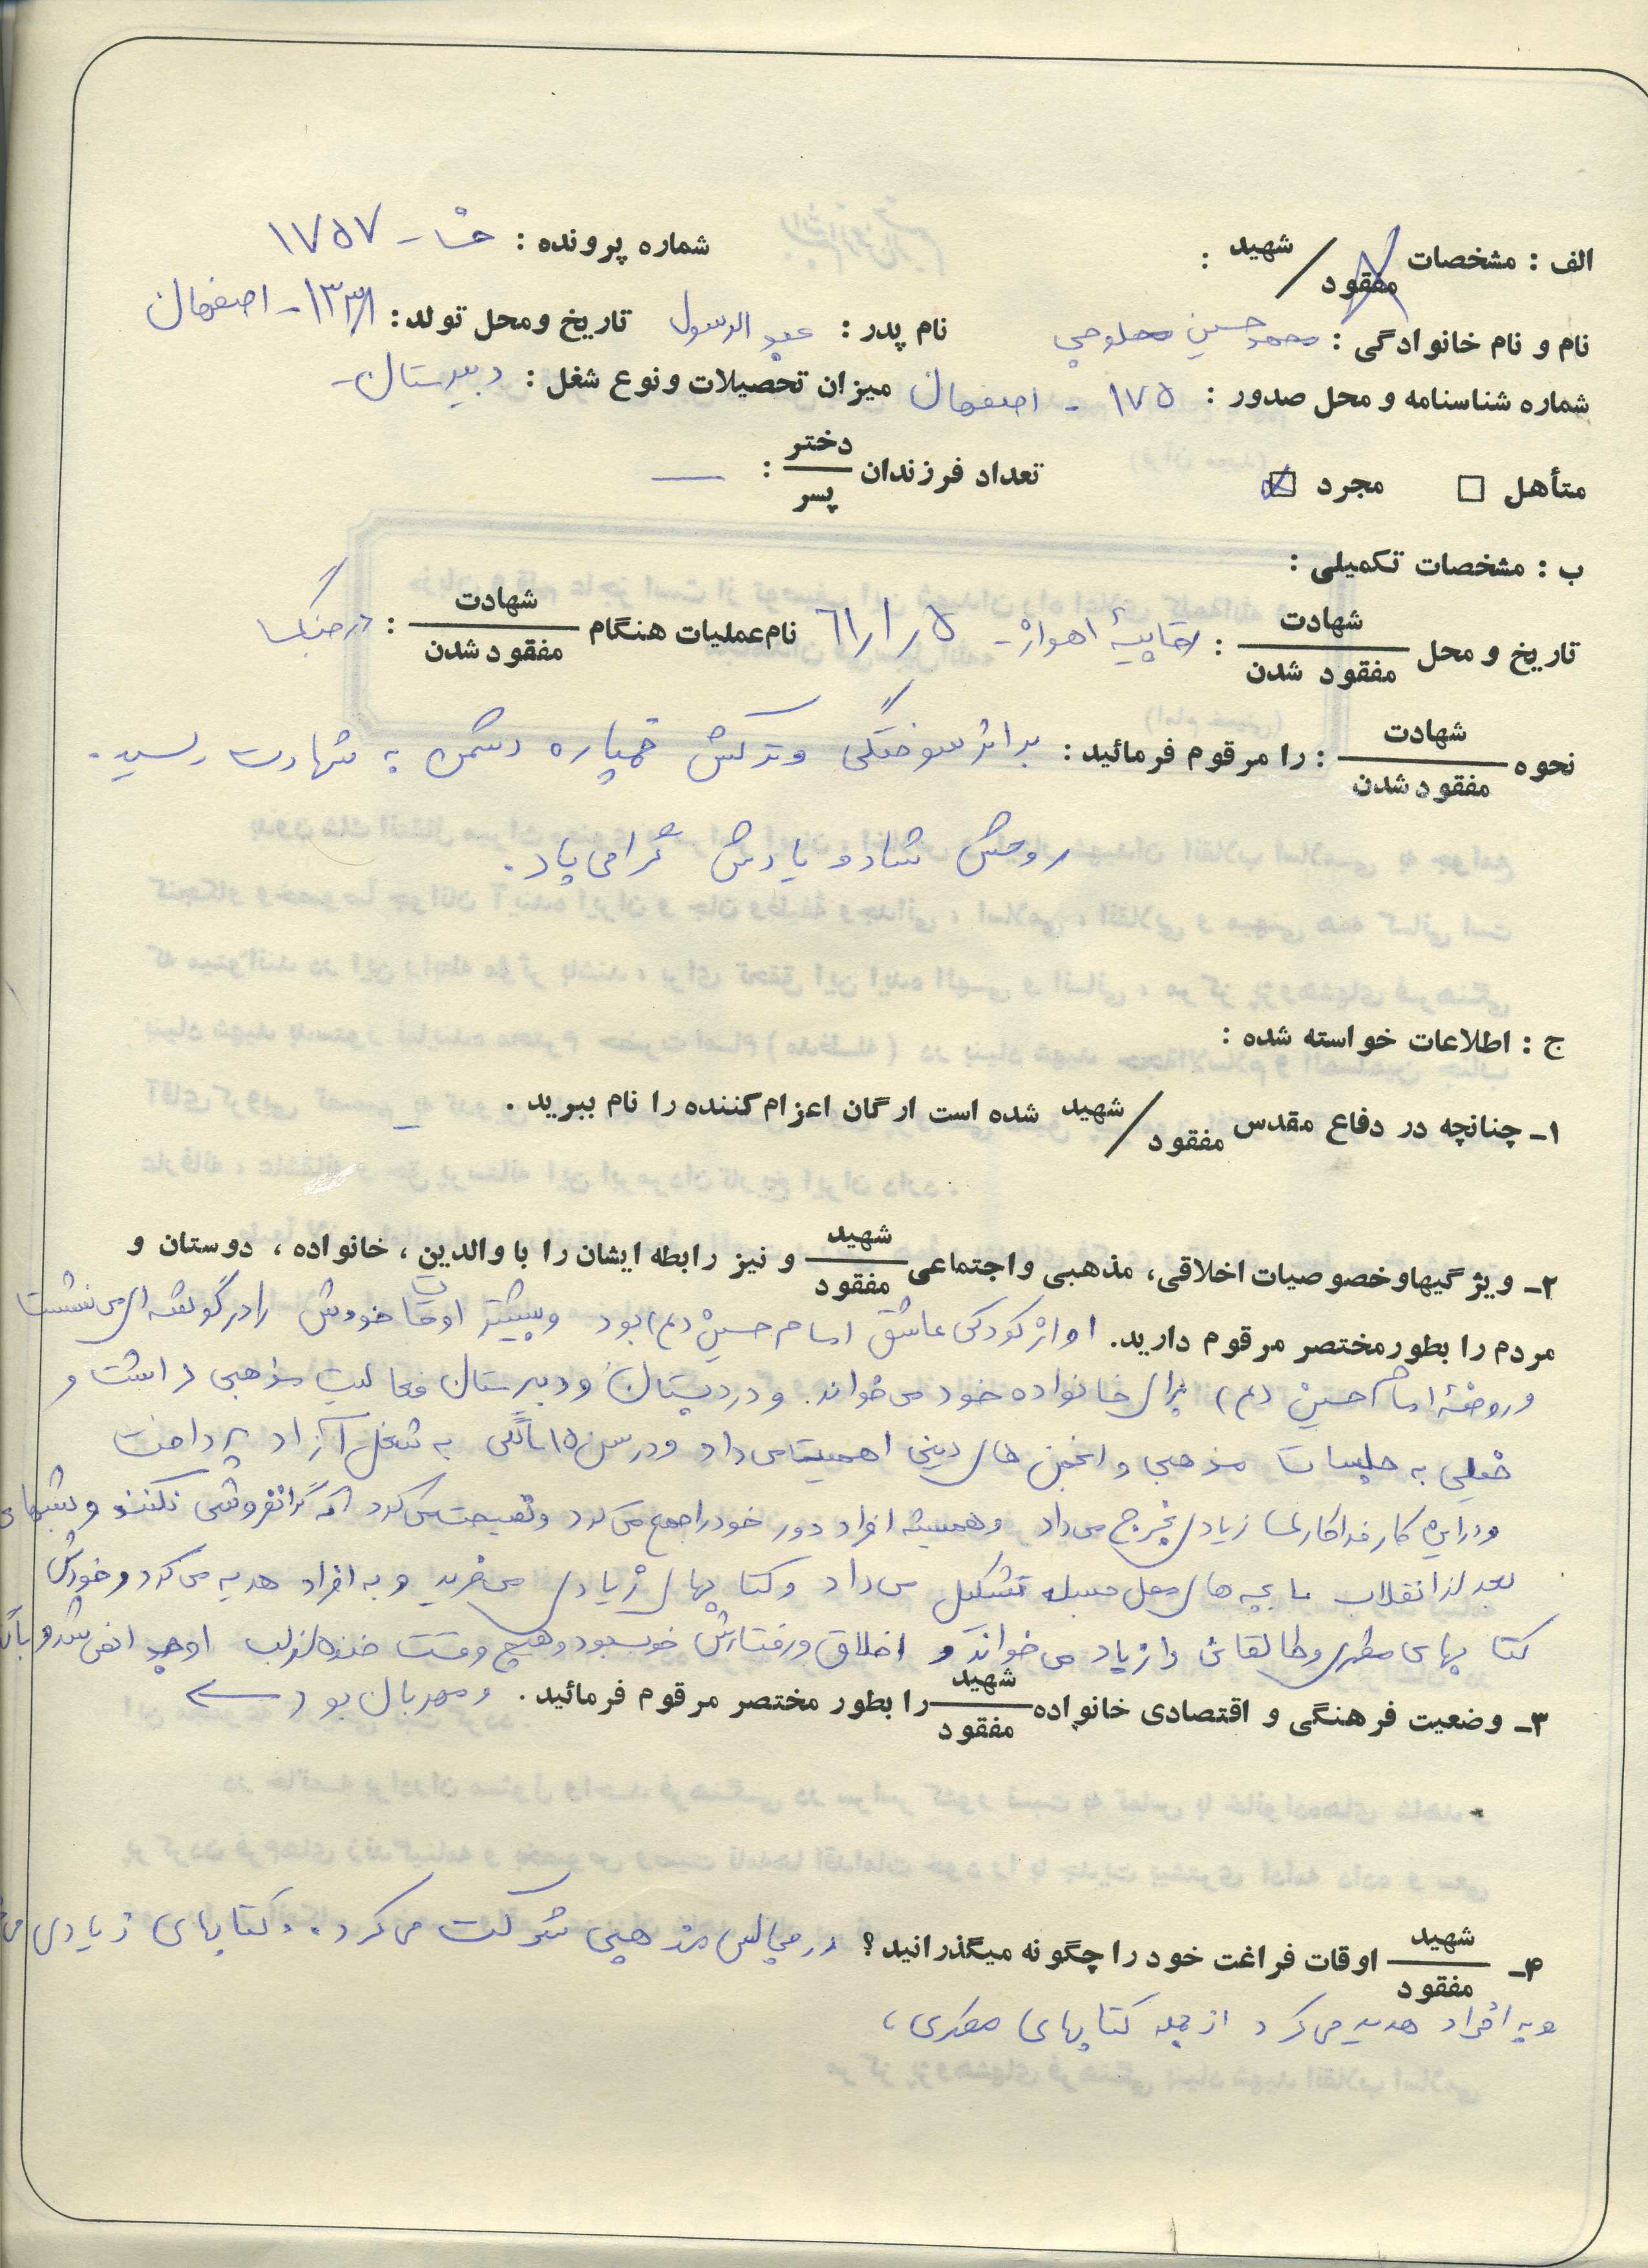 الف : مشخصات شهید / مفقود :
شماره پرونده : ۱۷۵۷
نام و نام خانوادگی : محمد حسین حلوجی نام پدر : عبدالرسول تاریخ ومحل تولد : - اصفهان
شماره شناسنامه و محل صدور : ۱۷۵ - اصفهان میزان تحصیلات ونوع شغل : دبیرستان -
متأهل □ مجرد ☑ تعداد فرزندان دختر / پسر : —
ب : مشخصات تکمیلی :
تاریخ و محل شهادت / مفقود شدن : اهواز - ۶۱/۱/۵ نام عملیات هنگام شهادت / مفقود شدن :
نحوه شهادت / مفقود شدن : را مرقوم فرمائید : براثر سوختگی وترکش خمپاره دشمن به شهادت رسید .
روحش شاد و یادش گرامی باد .
ج : اطلاعات خواسته شده :
۱ـ چنانچه در دفاع مقدس شهید / مفقود شده است ارگان اعزام کننده را نام ببرید .
۲ـ ویژگیهاوخصوصیات اخلاقی، مذهبی واجتماعی شهید / مفقود و نیز رابطه ایشان را با والدین ، خانواده ، دوستان و
مردم را بطورمختصر مرقوم دارید. او از کودکی عاشق امام حسین (ع) بود وبیشتر اوقات خودش را در گوشه ای می نشست
و روضهٔ امام حسین (ع) برای خانواده خود می خواند. و در دبستان و دبیرستان فعالیت مذهبی داشت و
خیلی به جلسات مذهبی و انجمن های دینی اهمیت می داد ودرسن ۱۵ سالگی به شغل آزاد پرداخت
ودراین کار فداکاریها زیادی بخرج می داد وهمیشه افراد دور خود را جمع می کرد ونصیحت می کرد که گرانفروشی نکنند و شبهای
بعد از انقلاب با بچه های محل جلسه تشکیل می داد وکتابهای زیادی می خرید و به افراد هدیه می کرد وخودش
کتابهای مطهری وطالقانی را زیاد می خواند و اخلاق ورفتارش خوب بود وهیچ وقت خنده از لب او
ومهربان بود
۳ـ وضعیت فرهنگی و اقتصادی خانواده شهید / مفقود را بطور مختصر مرقوم فرمائید .
۴ـ شهید / مفقود اوقات فراغت خود را چگونه میگذرانید؟ در مجالس مذهبی شرکت می کرد . وکتابهای زیادی
وبه افراد هدیه می کرد از جمله کتابهای مطهری ،